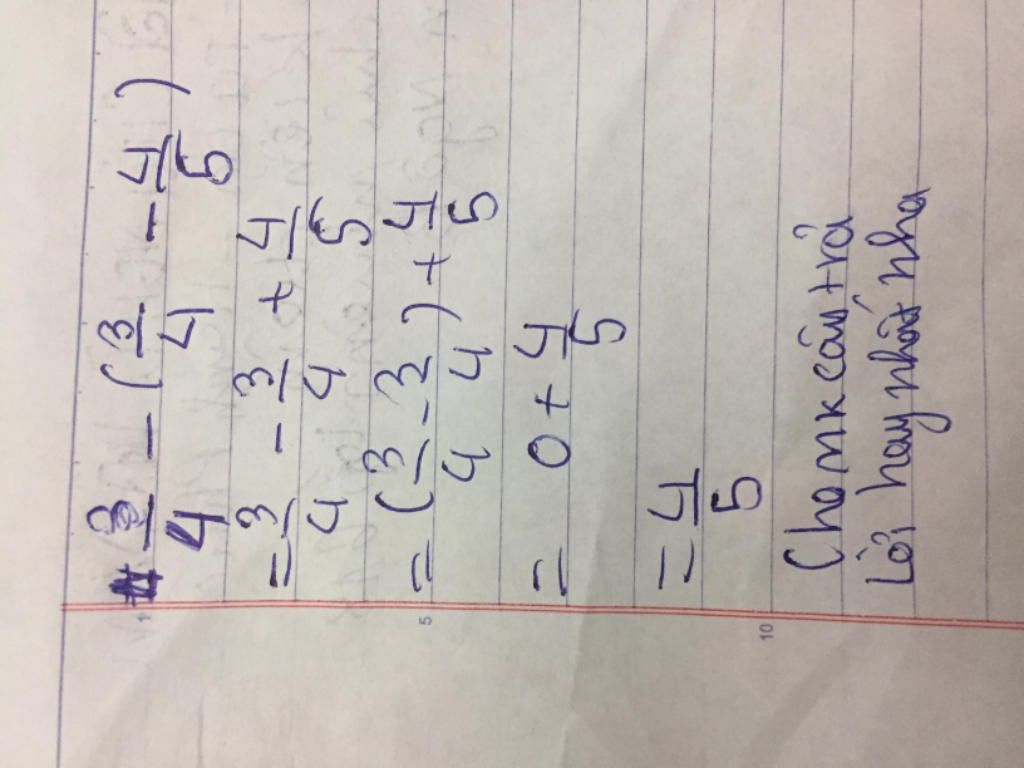 3/4 - (3/4 - 4/5)
= 3/4 - 3/4 + 4/5
= (3/4 - 3/4) + 4/5
= 0 + 4/5
= 4/5
Cho mk câu trả
lời hay nhất nha
1
5
10